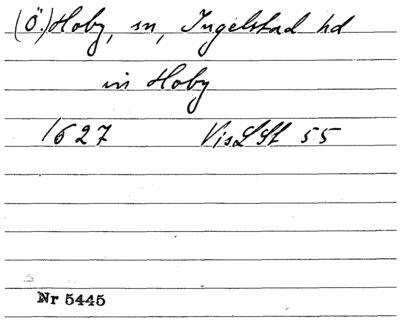 (Ö.) Hoby, sn, Ingelstad hd
in Hoby
1627 VisLSt 55
Nr 5445